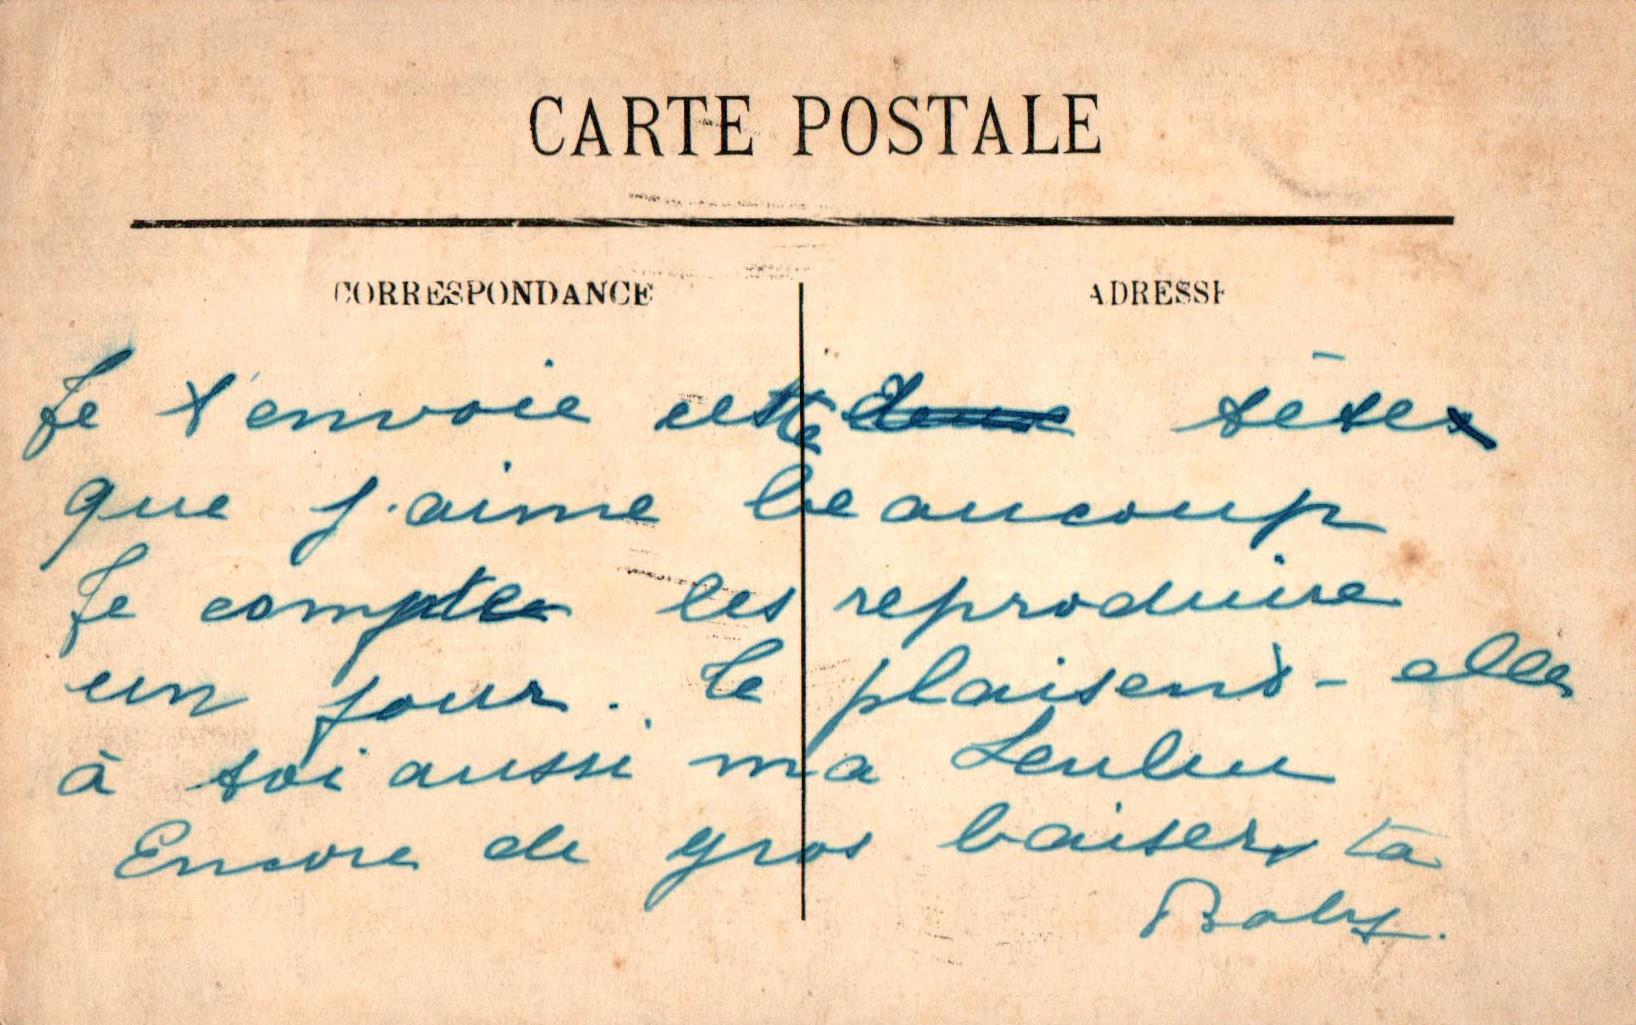 CARTE POSTALE
CORRESPONDANCE
ADRESSE
Je t'envoie cette têtes
que j'aime beaucoup
Je compte les reproduire
un jour. Te plaisent-elles
à toi aussi ma Loulou
Encore de gros baisers ta
Baby.